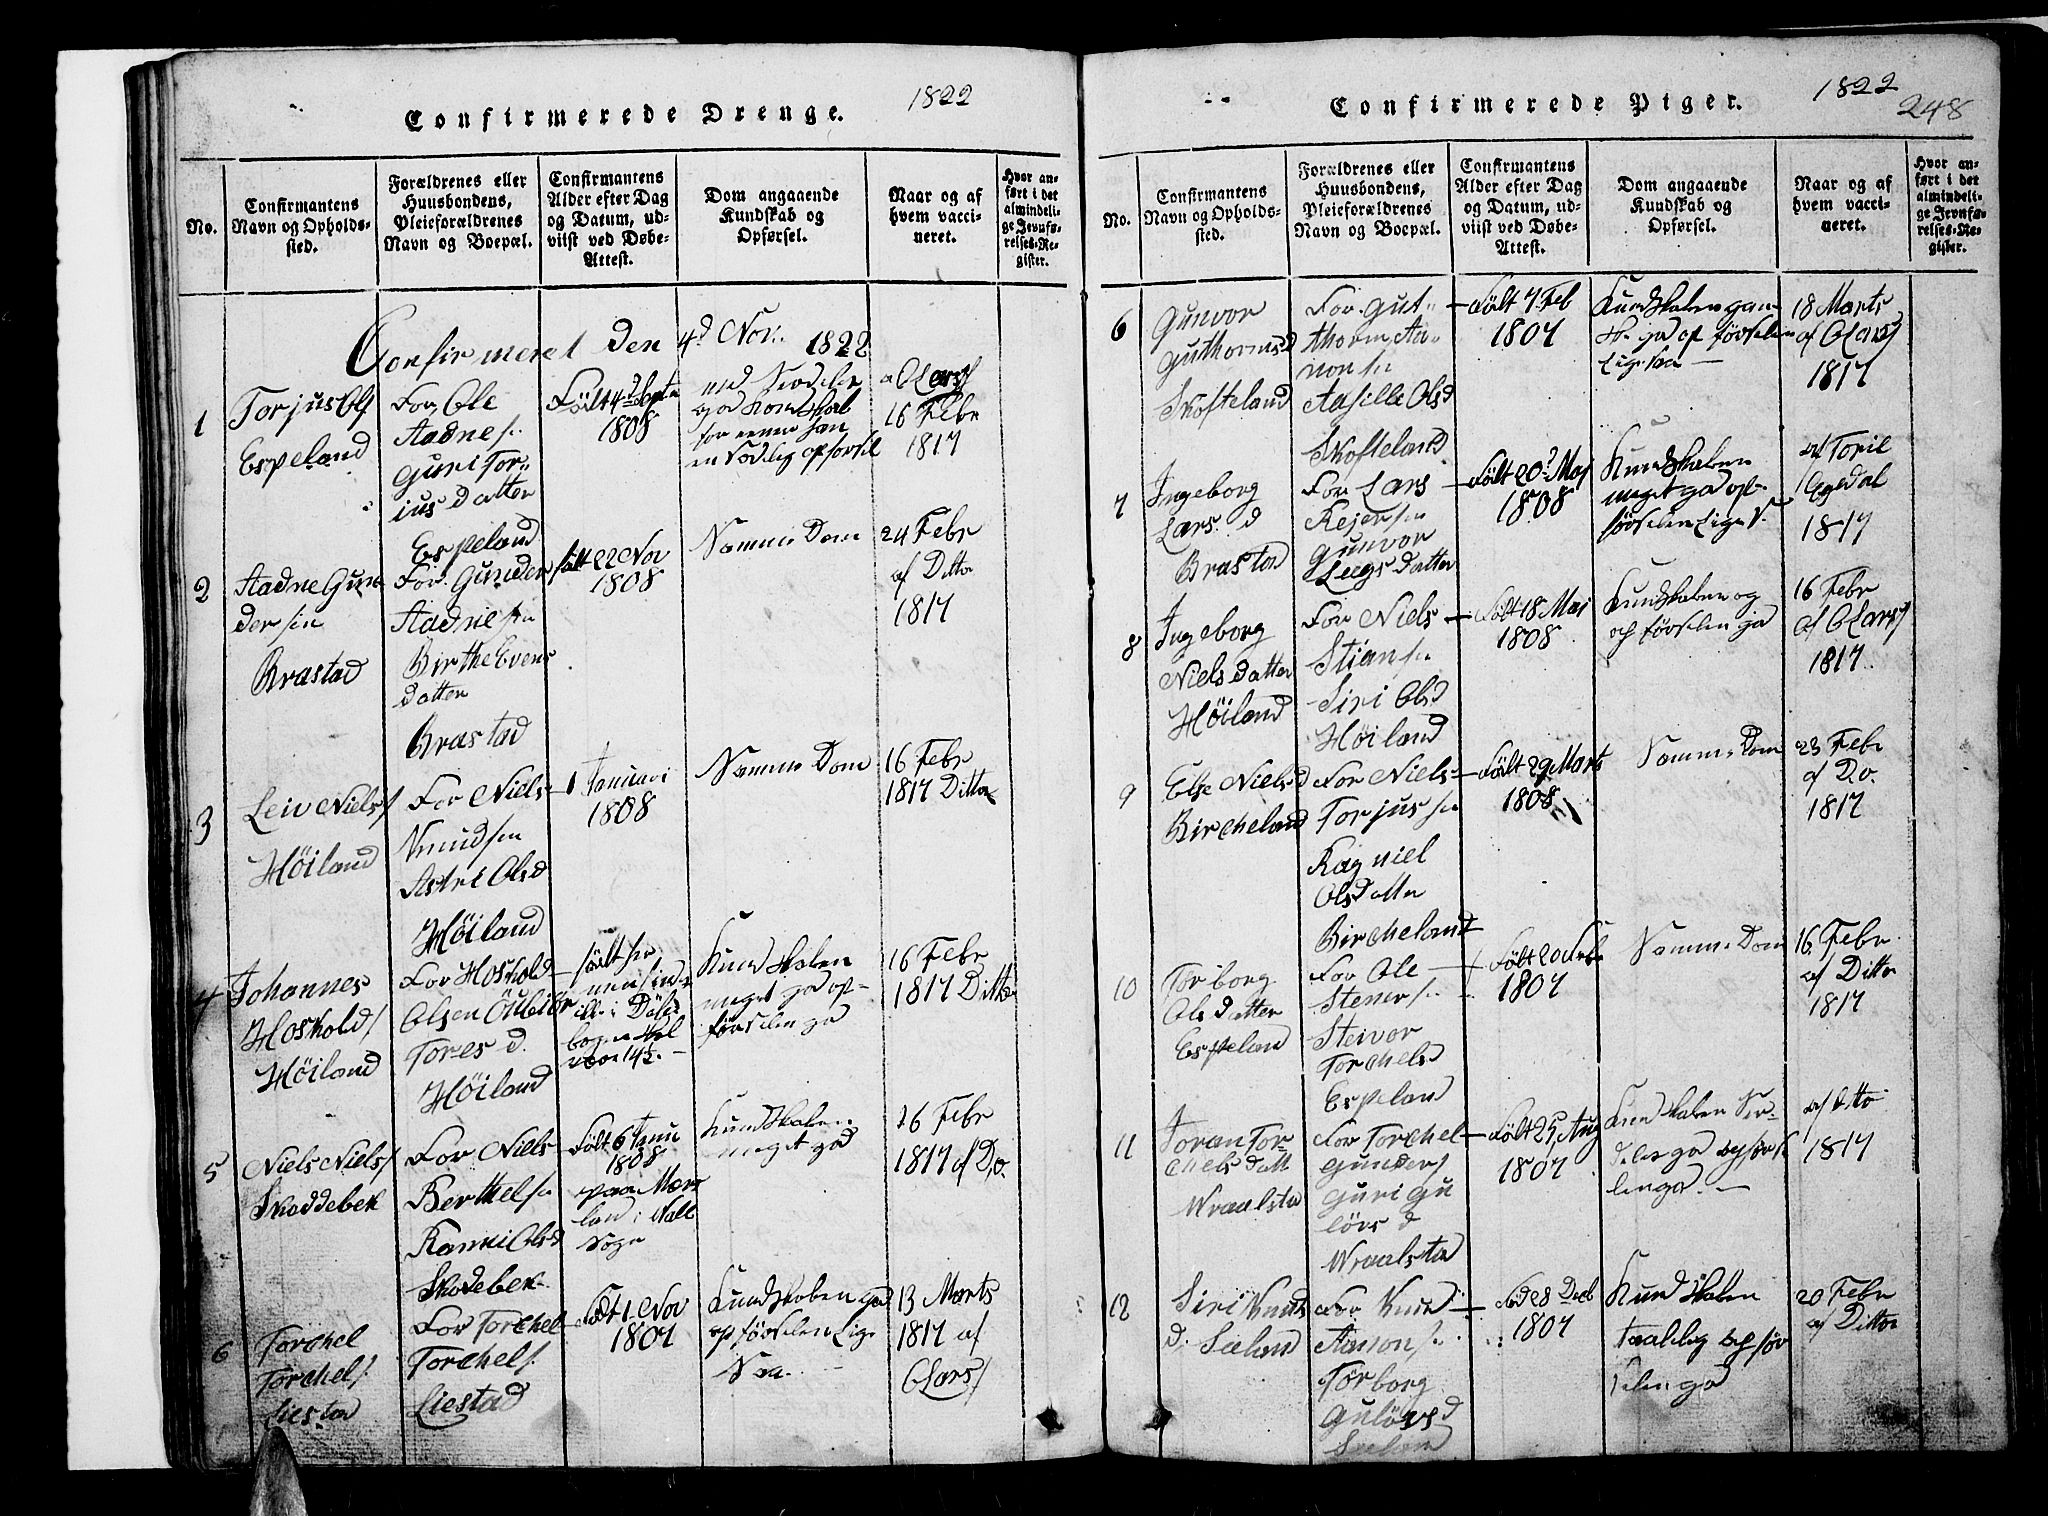 Confirmerede Drenge. 1822
No.
Confirmantens Navn og Opholds-sted.
Forældrenes eller Huusbondens, Pleieforældrenes Navn og Boepæl.
Confirmantens Alder efter Dag og Datum, ud-viist ved Døbe-Attest.
Dom angaaende Kundskab og Opførsel.
Naar og af hvem vacci-neret.
Hvor an-ført i det almindeli-ge Jevnfø-relses-Re-gister.
Confirmeret den 4d Nov. 1822
1
Torjus Ols
Espeland
For. Ole
Aadnes.
Guri Tor-
ius datter
Espeland
Født 4d Septr
1808
god Kundskab
a O Lars/
16 Febr
1817
2
Aadne Gun
dersen
Brastad
For. Gunder
Aadnesen
Birthe Evens
datter
Brastad
født 22 Nov
1808
Samme Dom
24 Febr
af Ditto
1817
3
Leiv Niels/
Höiland
For Niels
Knudsen
Astri Olsd
Höiland
1 Januari
1808
Samme Dom
16 Febr
1817 Ditto
4
Johannes
Hoskold/
Höiland
For Hoskold
Olsen
Tores d.
Höiland
født her
men findes
ikke i Döbe
bogen skal
være 14½.
Kundskaben
meget god op-
førselen god
16 Febr
1817 Ditto
5
Niels Niels/
Skoddebek
For Niels
Berthels.
Rannei Olsd
Skodebek
Født 6 Janu
1808
paa
land i Hall
Sogn
Kundskaben
meget god
26 Febr
1817 af Do.
6
Torchel
Torchels/
Liestad
For Torchel
Torchels/
Liestad
Født 1 Nov
1807
Kundskaben god
opførselen Lige
Saa.
13 Marts
1817 af
O Lars/
Confirmerede Piger. 1822
248
No.
Confirmantens Navn og Opholds-sted.
Forældrenes eller Huusbondens, Pleieforældrenes Navn og Boepæl.
Confirmantens Alder efter Dag og Datum, ud-viist ved Døbe-Attest.
Dom angaaende Kundskab og Opførsel.
Naar og af hvem vacci-neret.
Hvor an-ført i det almindeli-ge Jevnfø-relses-Re-gister.
6
Gunvor
Guthormsd
Skofteland
For. Gut-
thorm Aa-
nons.
Aasille Olsd
Skofteland
Født 7 Feb
1807
Kundskaben gan-
ske god opførselen
Ligesaa
18 Marts
af O Lars/
1817
7
Ingeborg
Lars. d
Brastad
For Lars
Rejers.
Gunvor
Leegsdatter
Født 20d Maj
1808
Kundskaben
meget god op-
førselen Lige S.
af Toril
Egedal
1817
8
Ingeborg
Nielsdatter
Höiland
For Niels
Stians.
Siri Olsd
Höiland
Født 18 Mai
1808
Kundskaben og
opførselen god
16 Febr
af O Lars/
1817.
9
Else Nielsd
Bircheland
For Niels
Torjus.
Ragniel
Olsdatter
Bircheland
Født 29 Marts
1808
Samme Dom
23 Febr
af Do.
1817
10
Torborg
Olsdatter
Espeland
For Ole
Steners.
Steivor
Torchelsd
Espeland
Født 20 Febr
1807
Samme Dom
16 Febr.
af Ditto
1817
11
Joran Tor-
chelsdatt
Wraalsta
For Torchel
Gunders/
Guri Gu
lövs d
Wraalstad
Født 25 Aug
1807
af Ditto
1817
12
Siri Knuds
d. Seeland
For Knud
Aanons.
Torborg
Gulövsd
Seeland
Född 28 Decb
1807
Kundskaben
taalelig opför
selen god
20 Febr
af Ditto